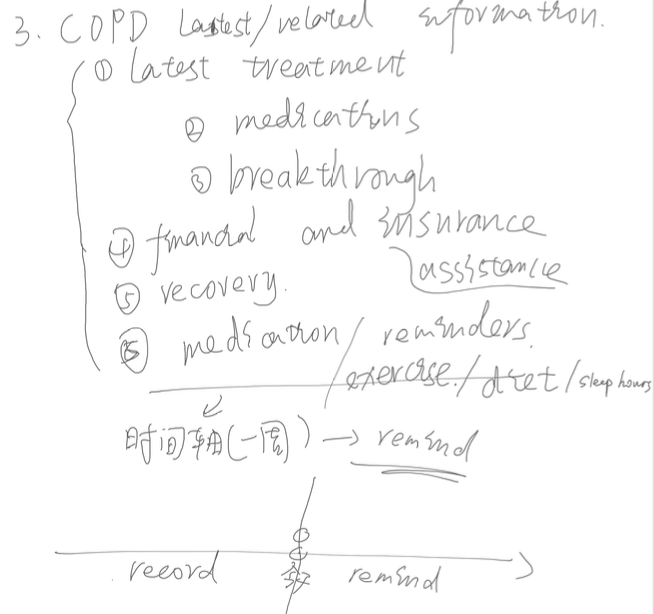 3. COPD Lastest/related information.
① Latest treatment
② medications
③ breakthrough
④ financial and insurance
assistance
⑤ recovery.
⑥ medication/reminders.
/exercise./diet/sleep hours
时间轴(一周) → remind
record remind